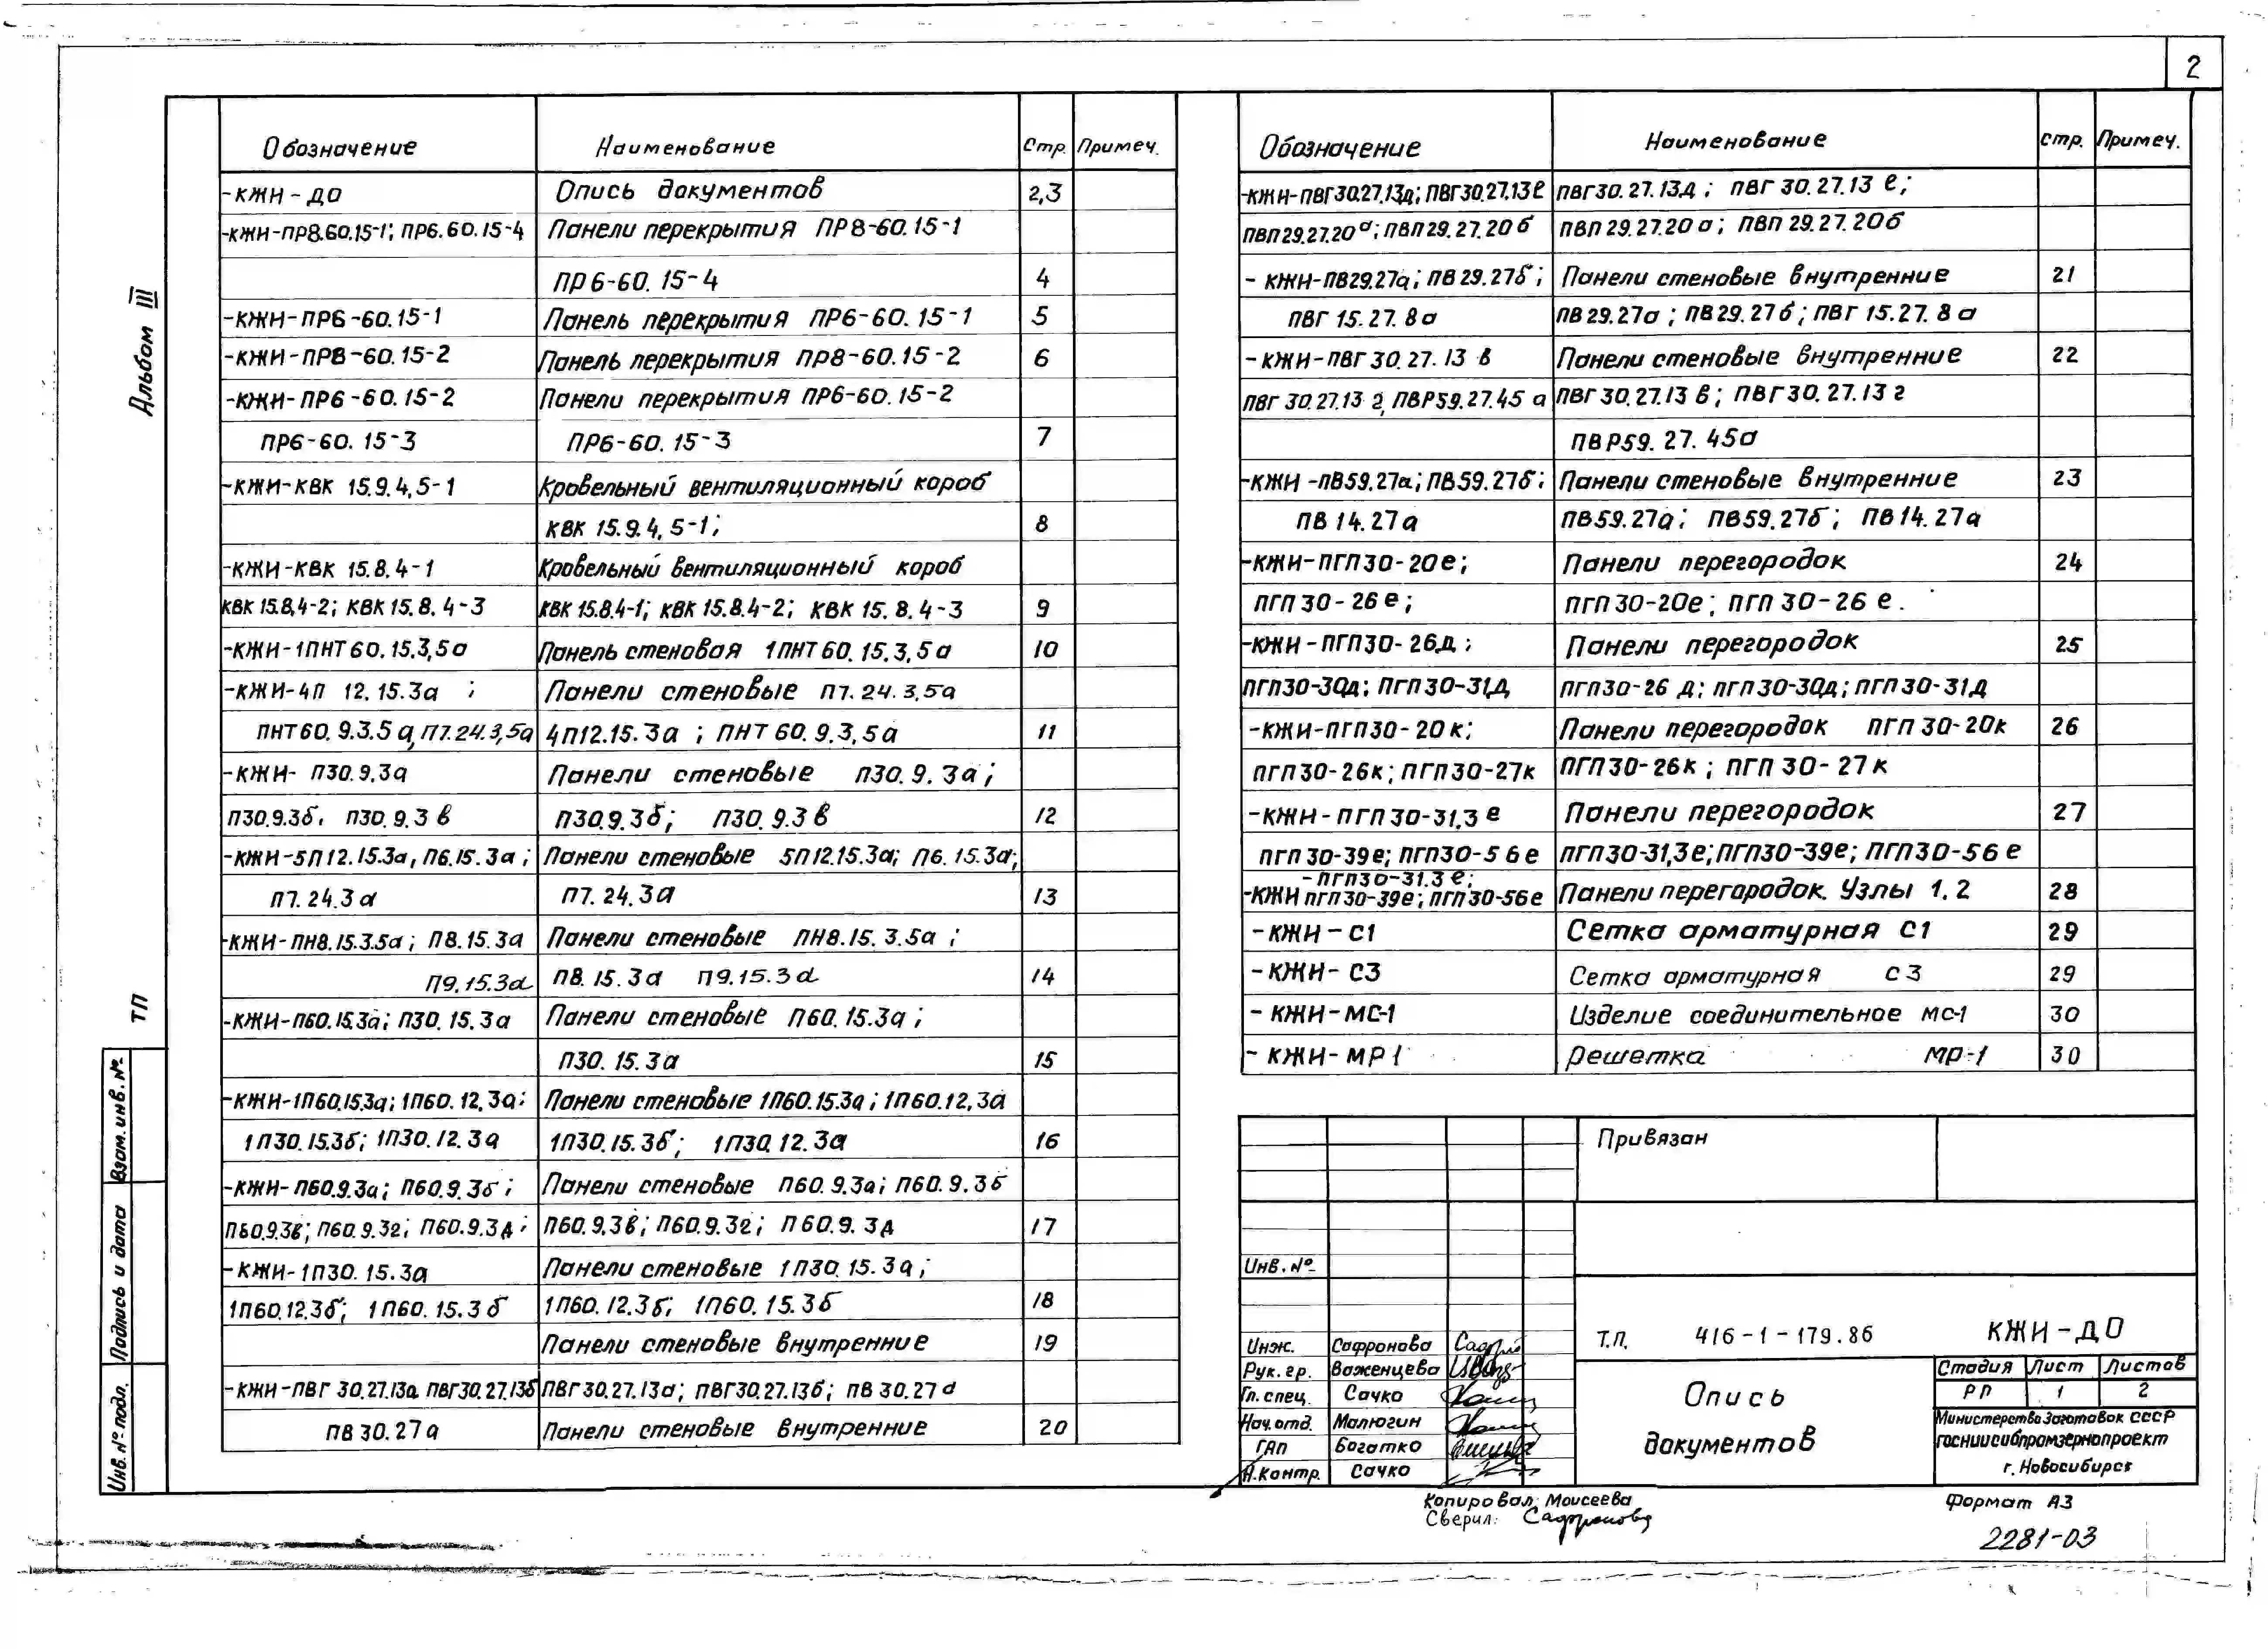 2
Альбом III
ТП
Взам. инв. №
Подпись и дата
Инв. № подл.
Обозначение Наименование Стр. Примеч.
-КЖИ-ДО Опись документов 2,3
-КЖИ-ПР8.60.15-1; ПР6.60.15-4 Панели перекрытия ПР8-60.15-1
ПР6-60.15-4 4
-КЖИ-ПР6-60.15-1 Панель перекрытия ПР6-60.15-1 5
-КЖИ-ПР8-60.15-2 Панель перекрытия ПР8-60.15-2 6
-КЖИ-ПР6-60.15-2 Панели перекрытия ПР6-60.15-2
ПР6-60.15-3 ПР6-60.15-3 7
-КЖИ-КВК 15.9.4,5-1 Кровельный вентиляционный короб
КВК 15.9.4,5-1; 8
-КЖИ-КВК 15.8.4-1 Кровельный вентиляционный короб
КВК 15.8.4-2; КВК 15.8.4-3 КВК 15.8.4-1; КВК 15.8.4-2; КВК 15.8.4-3 9
-КЖИ-1ПНТ60.15.3,5а Панель стеновая 1ПНТ60.15.3,5а 10
-КЖИ-4П 12.15.3а ; Панели стеновые П7.24.3,5а
ПНТ60.9.3.5а, П7.24.3,5а 4П12.15.3а ; ПНТ60.9.3,5а 11
-КЖИ- П30.9.3а Панели стеновые П30.9.3а;
П30.9.3б, П30.9.3в П30.9.3б; П30.9.3в 12
-КЖИ-5П12.15.3а, П6.15.3а ; Панели стеновые 5П12.15.3а; П6.15.3а;
П7.24.3а П7.24.3а 13
-КЖИ-ПН8.15.3.5а ; П8.15.3а Панели стеновые ПН8.15.3.5а ;
П9.15.3а П8.15.3а П9.15.3а 14
-КЖИ-П60.15.3а; П30.15.3а Панели стеновые П60.15.3а ;
П30.15.3а 15
-КЖИ-1П60.15.3а; 1П60.12,3а; Панели стеновые 1П60.15.3а ; 1П60.12,3а
1П30.15.3б; 1П30.12.3а 1П30.15.3б; 1П30.12.3а 16
-КЖИ-П60.9.3а; П60.9.3б ; Панели стеновые П60.9.3а; П60.9.3б
П60.9.3в; П60.9.3г; П60.9.3д; П60.9.3в; П60.9.3г; П60.9.3д 17
-КЖИ-1П30.15.3а Панели стеновые 1П30.15.3а;
1П60.12.3б; 1П60.15.3б 1П60.12.3б; 1П60.15.3б 18
Панели стеновые внутренние 19
-КЖИ-ПВГ 30.27.13а ПВГ30.27.13б ПВГ30.27.13а; ПВГ30.27.13б; ПВ 30.27а
ПВ 30.27а Панели стеновые внутренние 20
Обозначение Наименование Стр. Примеч.
-КЖИ-ПВГ30.27.13д; ПВГ30.27.13е ПВГ30.27.13д ; ПВГ 30.27.13 е;
ПВП29.27.20а; ПВП29.27.20б ПВП 29.27.20а; ПВП 29.27.20б
- КЖИ-ПВ29.27а; ПВ29.27б ; Панели стеновые внутренние 21
ПВГ 15.27.8а ПВ29.27а ; ПВ29.27б ; ПВГ 15.27.8а
-КЖИ-ПВГ 30.27.13 в Панели стеновые внутренние 22
ПВГ 30.27.13 г, ПВР59.27.45 а ПВГ30.27.13 в; ПВГ30.27.13 г
ПВР59.27.45а
-КЖИ-ПВ59.27а; ПВ59.27б; Панели стеновые внутренние 23
ПВ 14.27а ПВ59.27а; ПВ59.27б; ПВ14.27а
-КЖИ-ПГП30-20е; Панели перегородок 24
ПГП 30-26е; ПГП30-20е; ПГП30-26 е.
-КЖИ-ПГП30-26д ; Панели перегородок 25
ПГП30-30д; ПГП30-31д ПГП30-26 д; ПГП30-30д; ПГП30-31д
-КЖИ-ПГП30-20к; Панели перегородок ПГП30-20к 26
ПГП30-26к; ПГП30-27к ПГП30-26к ; ПГП 30-27к
-КЖИ-ПГП30-31,3 е Панели перегородок 27
ПГП30-39е; ПГП30-56е ПГП30-31,3е; ПГП30-39е; ПГП30-56е
-ПГП30-31.3 е;
-КЖИ ПГП30-39е; ПГП30-56е Панели перегородок. Узлы 1, 2 28
-КЖИ-С1 Сетка арматурная С1 29
-КЖИ-С3 Сетка арматурная С3 29
-КЖИ-МС-1 Изделие соединительное МС-1 30
-КЖИ-МР1 Решетка МР-1 30
Привязан
Инв. №
Инж. Сафронова
Рук. гр. Важенцева
Гл. спец. Сачко
Нач. отд. Малюгин
ГАП Богатко
Н. контр. Сачко
Т.П. 416-1-179.86 КЖИ-ДО
Опись
документов
Стадия Лист Листов
РП 1 2
Министерство Заготовок СССР
ГОСНИИСибпромзернопроект
г. Новосибирск
Копировал: Моисеева
Сверил: Сафронова
Формат А3
2281-03